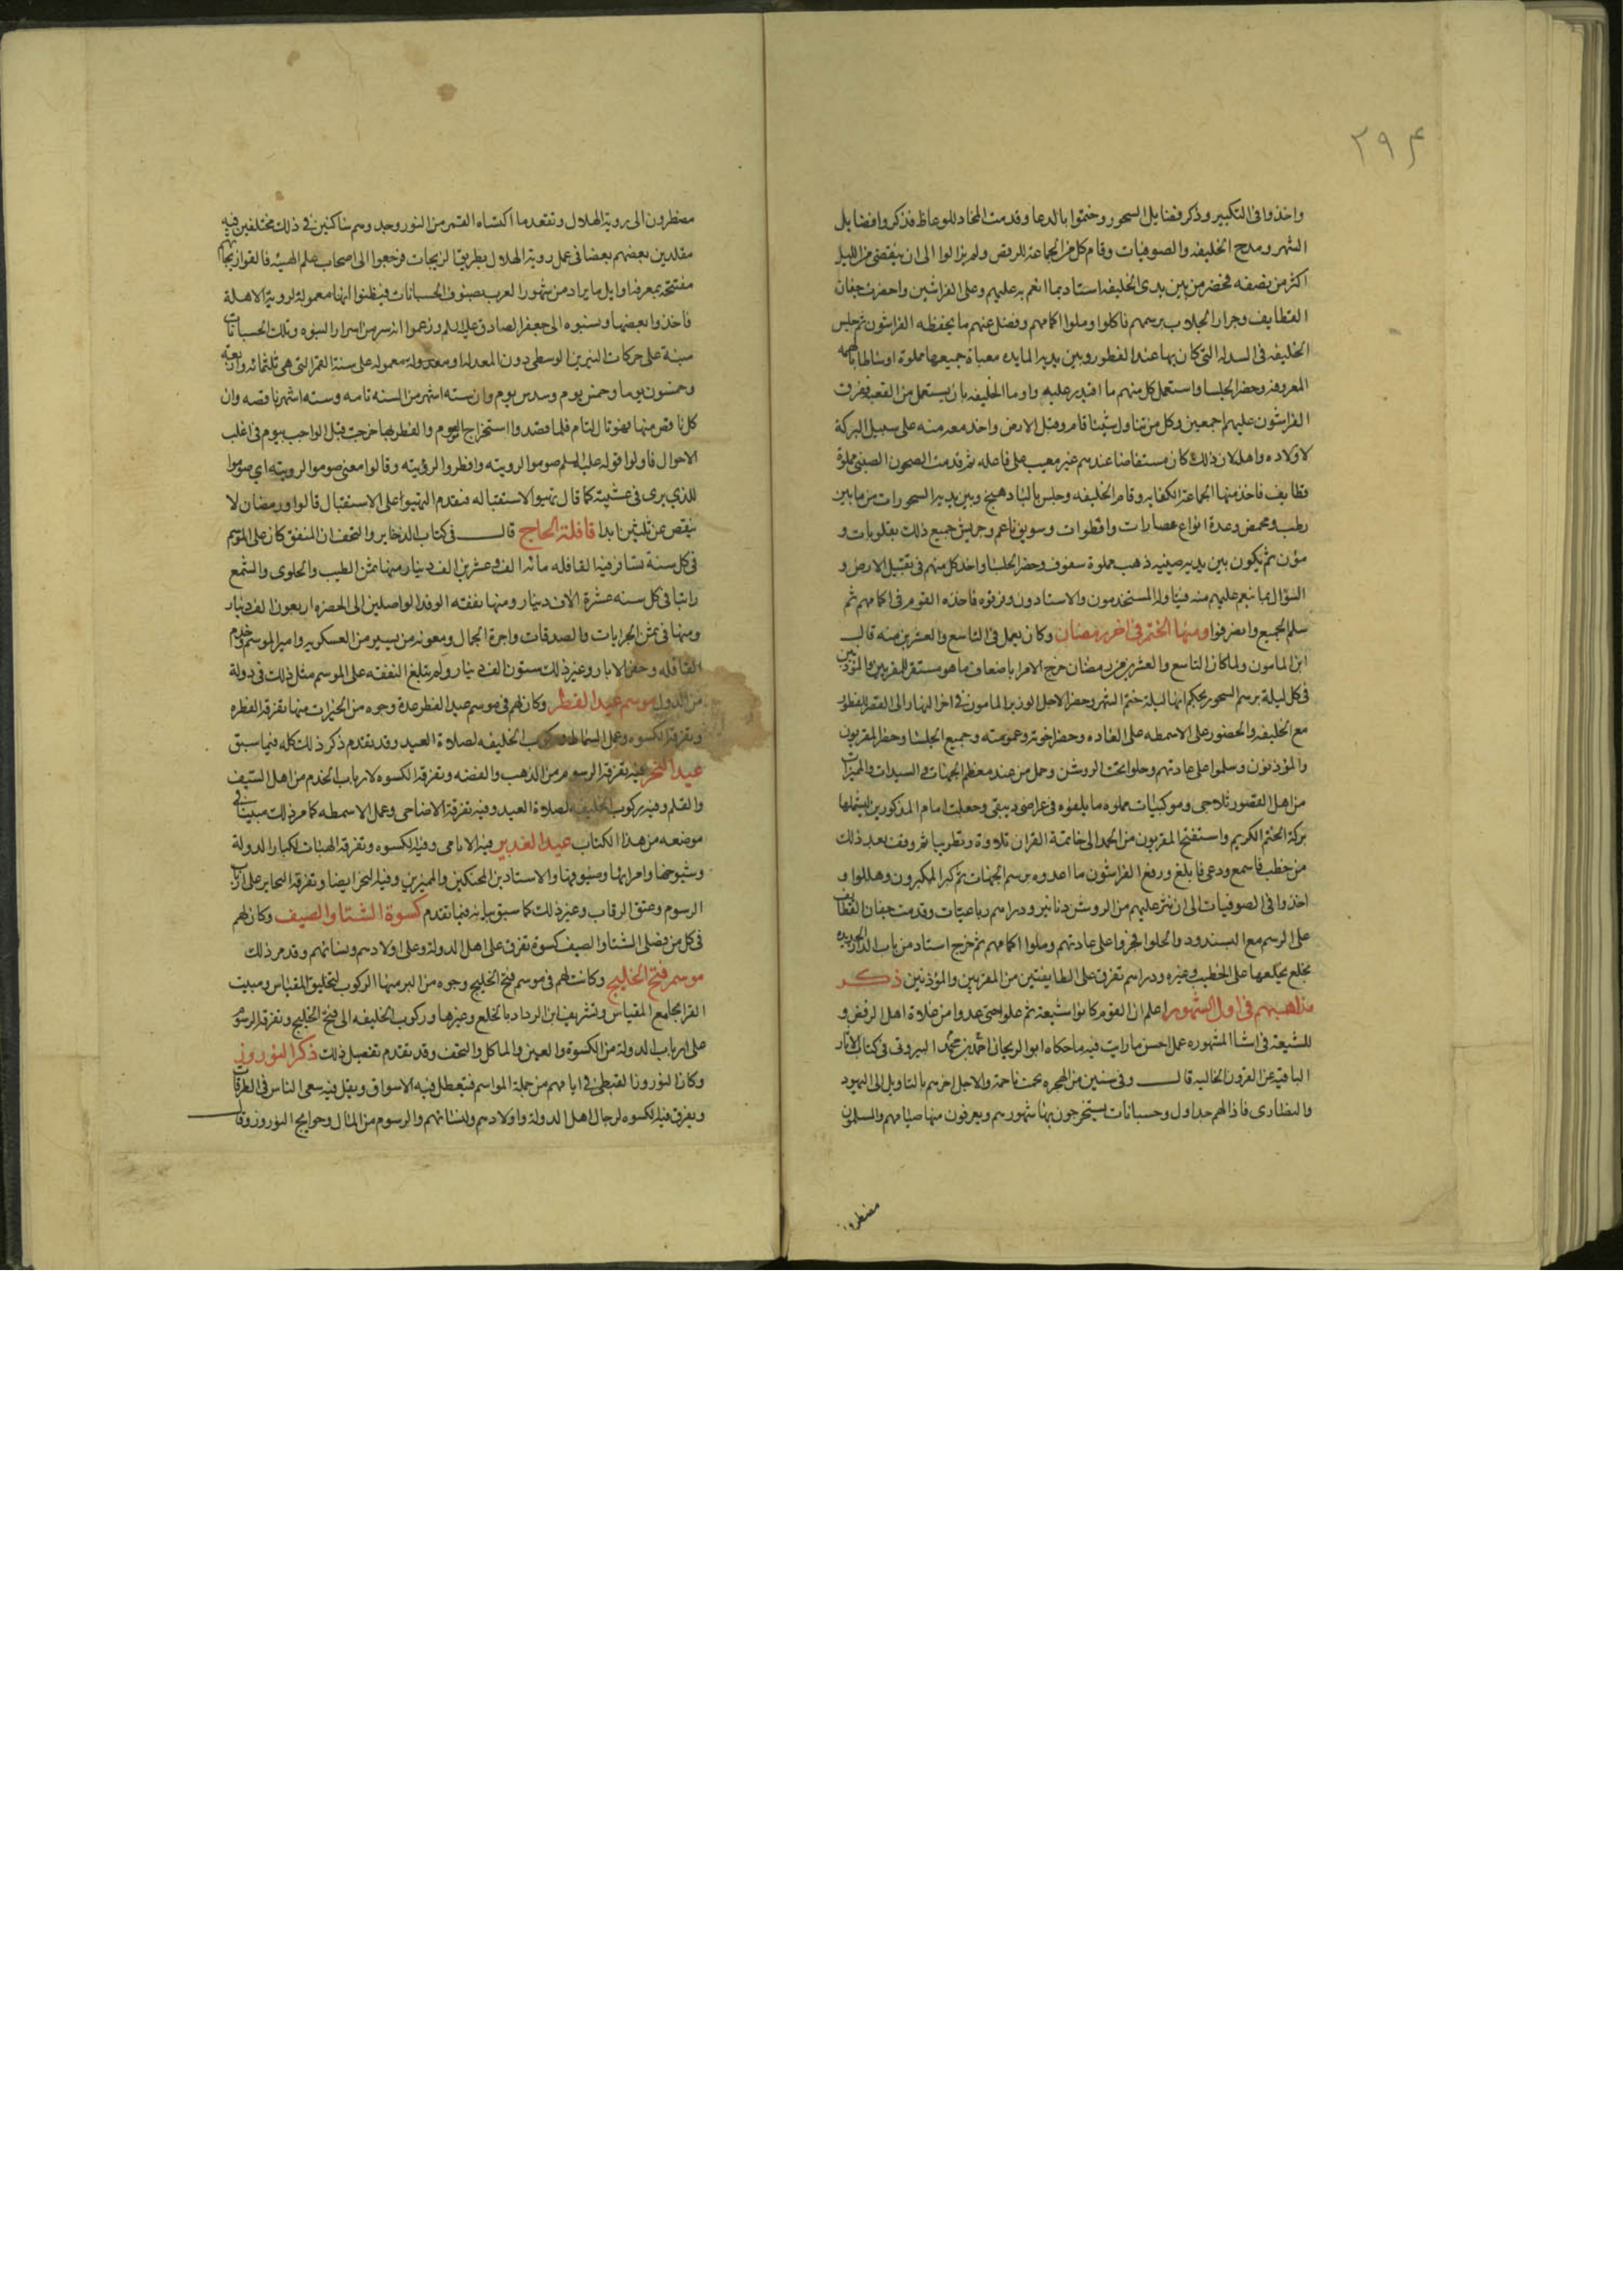 ٢٩۴
واخذوا فى التكبير وذكر فضايل السحور وختموا بالدعا وقدمت المخاد للوعاظ فذكروا فضايل
الشهر ومدح الخليفه والصوفيات وقام كل من الجماعة للرقص ولم يزالوا الى ان ينقضى من الليل
اكثر من نصفه فحضر من بين يدى الخليفه استاد بما انعم به عليهم وعلى الفراشين واحضرت جفان
القطايف وجرار الجلاب برسمهم فاكلوا وملوا اكمامهم وفضل عنهم ما تخطفه الفراشون ثم جلس
الخليفه فى السدله التى كان بها عند الفطور وبين يديه المايده معباة جميعها مملوة اوساطها بالهمه
المعروفة وحضر الجلسا واستعمل كل منهم ما اقتدر عليه واوما الخليفه بان يستعمل من القعبه ففرق
الفراشون عليهم اجمعين وكل من تناول شيئا قام وقبل الارض واخذ معه منه على سبيل البركة
لاولاده واهله لان ذلك كان مستفاضا عندهم غير معيب على فاعله ثم قدمت الصحون الصينى مملوة
قطايف فاخذ منها الجماعة الكفايه وقام الخليفه وجلس بالباد هنج وبين يديه السحورات من ما بين
رطب ومحمض وعدة انواع عصارات وافطوات وسويق ناعم وجريش جميع ذلك بقلوبات و
مؤن ثم يكون بين يديه صينيه ذهب مملوة سفوف وحضر الجلسا واخذ كل منهم فى تقبيل الارض و
السؤال بما ينعم عليهم منه فتناوله المستخدمون والاستادون وفرقوه فاخذه القوم فى اكمامهم ثم
سلم الجميع وانصرفوا ومنها الختم فى اخر رمضان وكان يعمل فى التاسع والعشرين منه قال
ابن المامون ولما كان التاسع والعشرين من رمضان خرج الامر باضعاف ما هو مستقر للمقريين والمؤذنين
فى كل ليلة برسم السحور بحكم انها ليلة ختم الشهر وحضر الاجل الوزير المامون فى اخر النهار الى القصر للفطور
مع الخليفه والحضور على الاسمطه على العاده وحضر اخوته وعمومته وجميع الجلسا وحضر المقريون
والمؤذنون وسلموا على عادتهم وجلوا تحت الروشن وحمل من عند معظم الجهات والسيدات والمميزات
من اهل القصور ثلاجى وموكبيات مملوه ما ملفوفه فى عراضى دبيقى وجعلت امام المذكورين ليشملها
بركة الختم الكريم واستفتح المقريون من الحمد الى خاتمة القران تلاوة وتطريبا ثم وقف بعد ذلك
من خطب فاسمع ودعى فابلغ ورفع الفراشون ما اعدوه برسم الجهات ثم كبر المكبرون وهللوا و
اخذوا فى الصوفيات الى ان نثر عليهم من الروشن دنانير ودراهم رباعيات وقدمت جفان القطايف
على الرسم مع البسندود والحلوا فجروا على عادتهم وملوا اكمامهم ثم خرج استاد من باب الدار الجديده
بخلع يخلعها على الخطيب وغيره ودراهم تفرق على الطايفتين من المقريين والمؤذنين ذكر
مذاهبهم فى اول الشهور اعلم ان القوم كانوا شيعة ثم غلوا حتى عدوا من غلاة اهل الرفض و
للشيعة فى اشا الشهوره عمل احسن ما رايت فيه ما حكاه ابو الريحان احمد بن محمد البيرونى فى كتاب الاثار
الباقية عن القرون الخاليه قال وفى سنين من الهجره نجمت ناجمة والاجل اخزهم بالتاويل الى اليهود
والنصارى فاذا لهم جداول وحسبانات يستخرجون بها شهورهم ويعرفون منها صيامهم والمسلمون
مضطرون
مضطرون الى روية الهلال وتفقد ما اكتساه القمر من النور وجدوهم شاكين فى ذلك مختلفين فيه
مقلدين بعضهم بعضا فى عمل روية الهلال بطريق الزيجات فرجعوا الى اصحاب علم الهيئه فالفوا زيجاتهم
مفتتحة بمعرفة اوايل ما يراد من شهور العرب بصنوف الحسبانات فيظنوا انها معموله لروية الاهلة
فاخذوا بعضها ونسبوه الى جعفر الصادق عليه السلم وزعموا انه سر من اسرار النبوه وتلك الحسبانات
مبنية على حركات النيرين الوسطى دون المعدله او معدوله معموله على سنة القمر التى هى ثلثمائه واربعة
وخمسون يوما وخمس يوم وسدس يوم وان سته اشهر من السنه تامه وسته اشهر ناقصه وان
كل ناقص منها فهو تال لتام فلما قصدوا استخراج الصوم والفطر بها خرجت قبل الواجب بيوم فى اغلب
الاحوال فاولوا قوله عليه السلم صوموا لرويته وافطروا لرؤيته وقالوا معنى صوموا لرويته اي صوموا
للذي يرى فى عشيته كما قال تهيوا لاستقباله فيقدم التهيوا على الاستقبال قالوا ورمضان لا
ينقص عن ثلثين ابدا قافلة الحاج قال فى كتاب الدخاير والتحف ان المنفق كان على الموسم
فى كل سنة تسافر فيه القافله مائه الف وعشرين الف دينار منها ثمن الطيب والحلوى والشمع
راتبا فى كل سنه عشرة الاف دينار ومنها نفقه الوفد الواصلين الى الحضره اربعون الف دينار
ومنها فى ثمن الجرايات والصدقات واجرة الجمال ومعونه من يسير من العسكريه وامير الموسم وخدم
القافله وحفر الابار وغير ذلك ستون الف دينار ولم تبلغ النفقه على الموسم مثل ذلك فى دولة
من الدول موسم عيد الفطر وكان لهم فى موسم عيد الفطر عدة وجوه من الخيرات منها تفرقة الفطره
وتفرقة الكسوه وعمل السماط وركوب الخليفه لصلاة العيد وقد تقدم ذكر ذلك كله فيما سبق
عيد النحر فيه تفرقة الرسوم من الذهب والفضه وتفرقة الكسوه لارباب الخدم من اهل السيف
والقلم وفيه ركوب الخليفه لصلاة العيد وفيه تفرقة الاضاحى وعمل الاسمطه كما مر ذلك مبينا فى
موضعه من هذا الكتاب عيد الغدير فيه الايامى وفيه الكسوه وتفرقة الهبات لكبار الدولة
وشيوخها وامرايها وضيوفها والاستادين المحنكين والمميزين وفيه النحر ايضا وتفرقة النحاير على ارباب
الرسوم وعتق الرقاب وغير ذلك كما سبق بيانه فيما تقدم كسوة الشتا والصيف وكان لهم
فى كل من فصلى الشتا والصيف كسوة تفرق على اهل الدولة وعلى اولادهم ونسائهم وقد مر ذلك
موسم فتح الخليج وكانت لهم فى موسم فتح الخليج وجوه من البر منها الركوب لتخليق المقياس ومبيت
القرا بجامع المقياس وتشريف ابن الرداد بالخلع وغيرها وركوب الخليفه الى فتح الخليج وتفرقة الرسوم
على ارباب الدوله من الكسوة والعين والماكل والتحف وقد تقدم تفصيل ذلك ذكر النوروز
وكان النوروز القبطى فى ايامهم من جملة المواسم فتتعطل فيه الاسواق ويقل فيه سعى الناس فى الطرقات
ويفرق فيه الكسوه لرجال اهل الدولة واولادهم ونسائهم والرسوم من المال وحوايج النوروز وقال